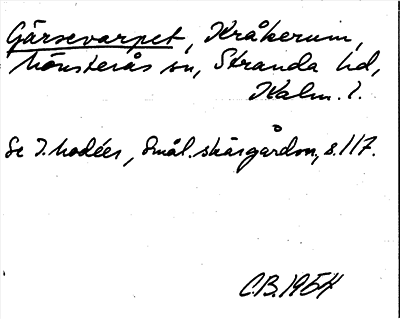 Gärsevarpet, Kråkerum,
Mönsterås sn, Stranda hd,
Kalm. l.
Se I. Modéer, Smål. skärgårdsn., s. 117.
C.B. 1954